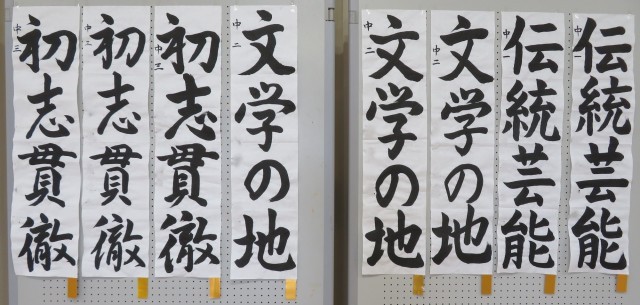 伝統芸能
中一
伝統芸能
中一
文学の地
中二
文学の地
中二
文学の地
中二
初志貫徹
中三
初志貫徹
中三
初志貫徹
中三